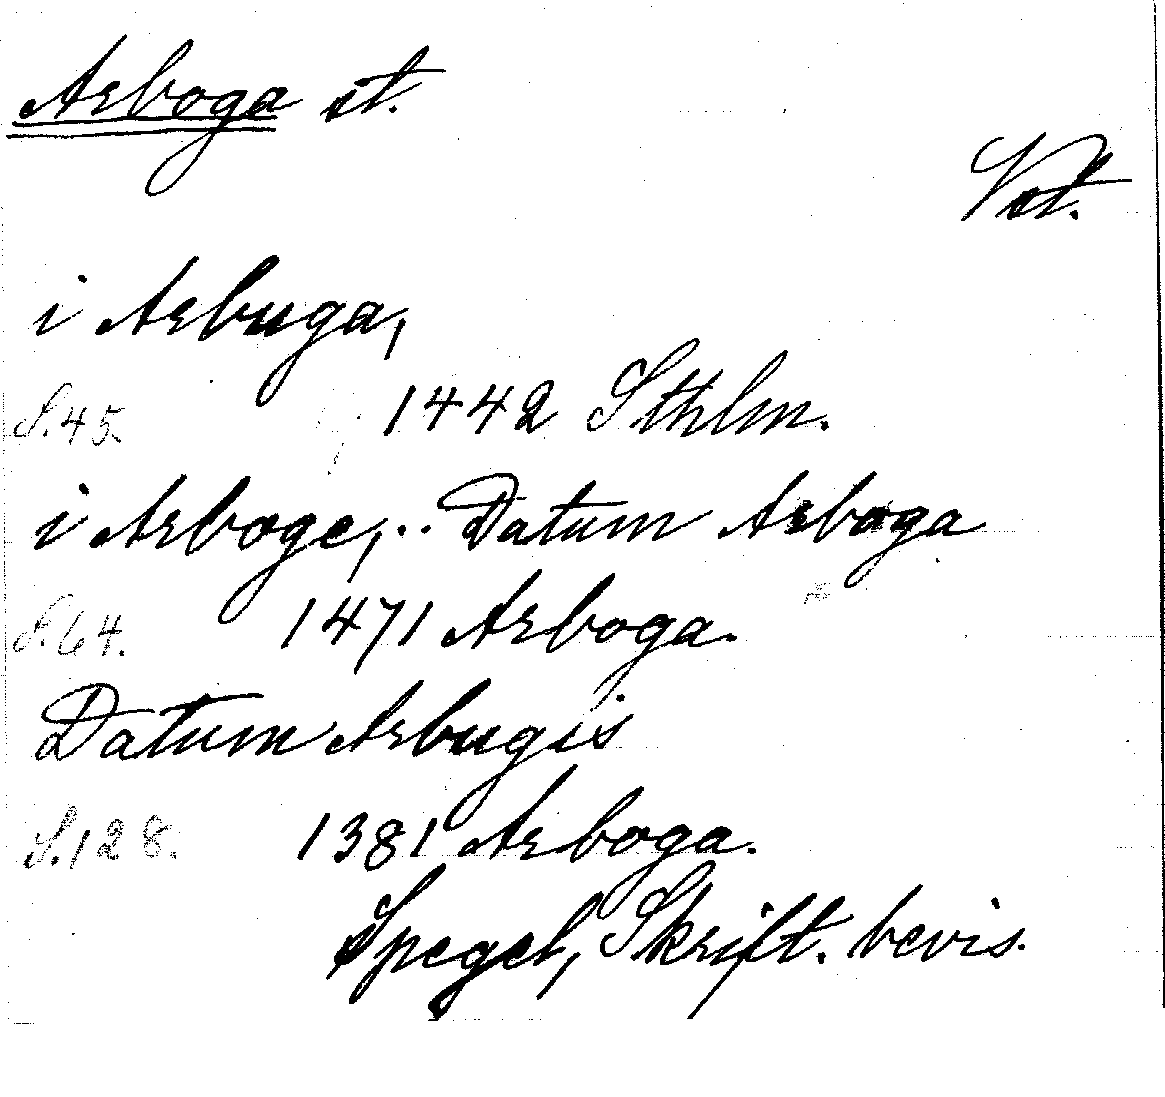 Arboga st.
Vst.
i Arbuga,
S. 45. 1442 Sthlm.
i Arboge,.. Datum Arboga
S. 64. 1471 Arboga.
Datum Arbugis
S. 128. 1381 Arboga.
Spegel, Skrift. bevis.